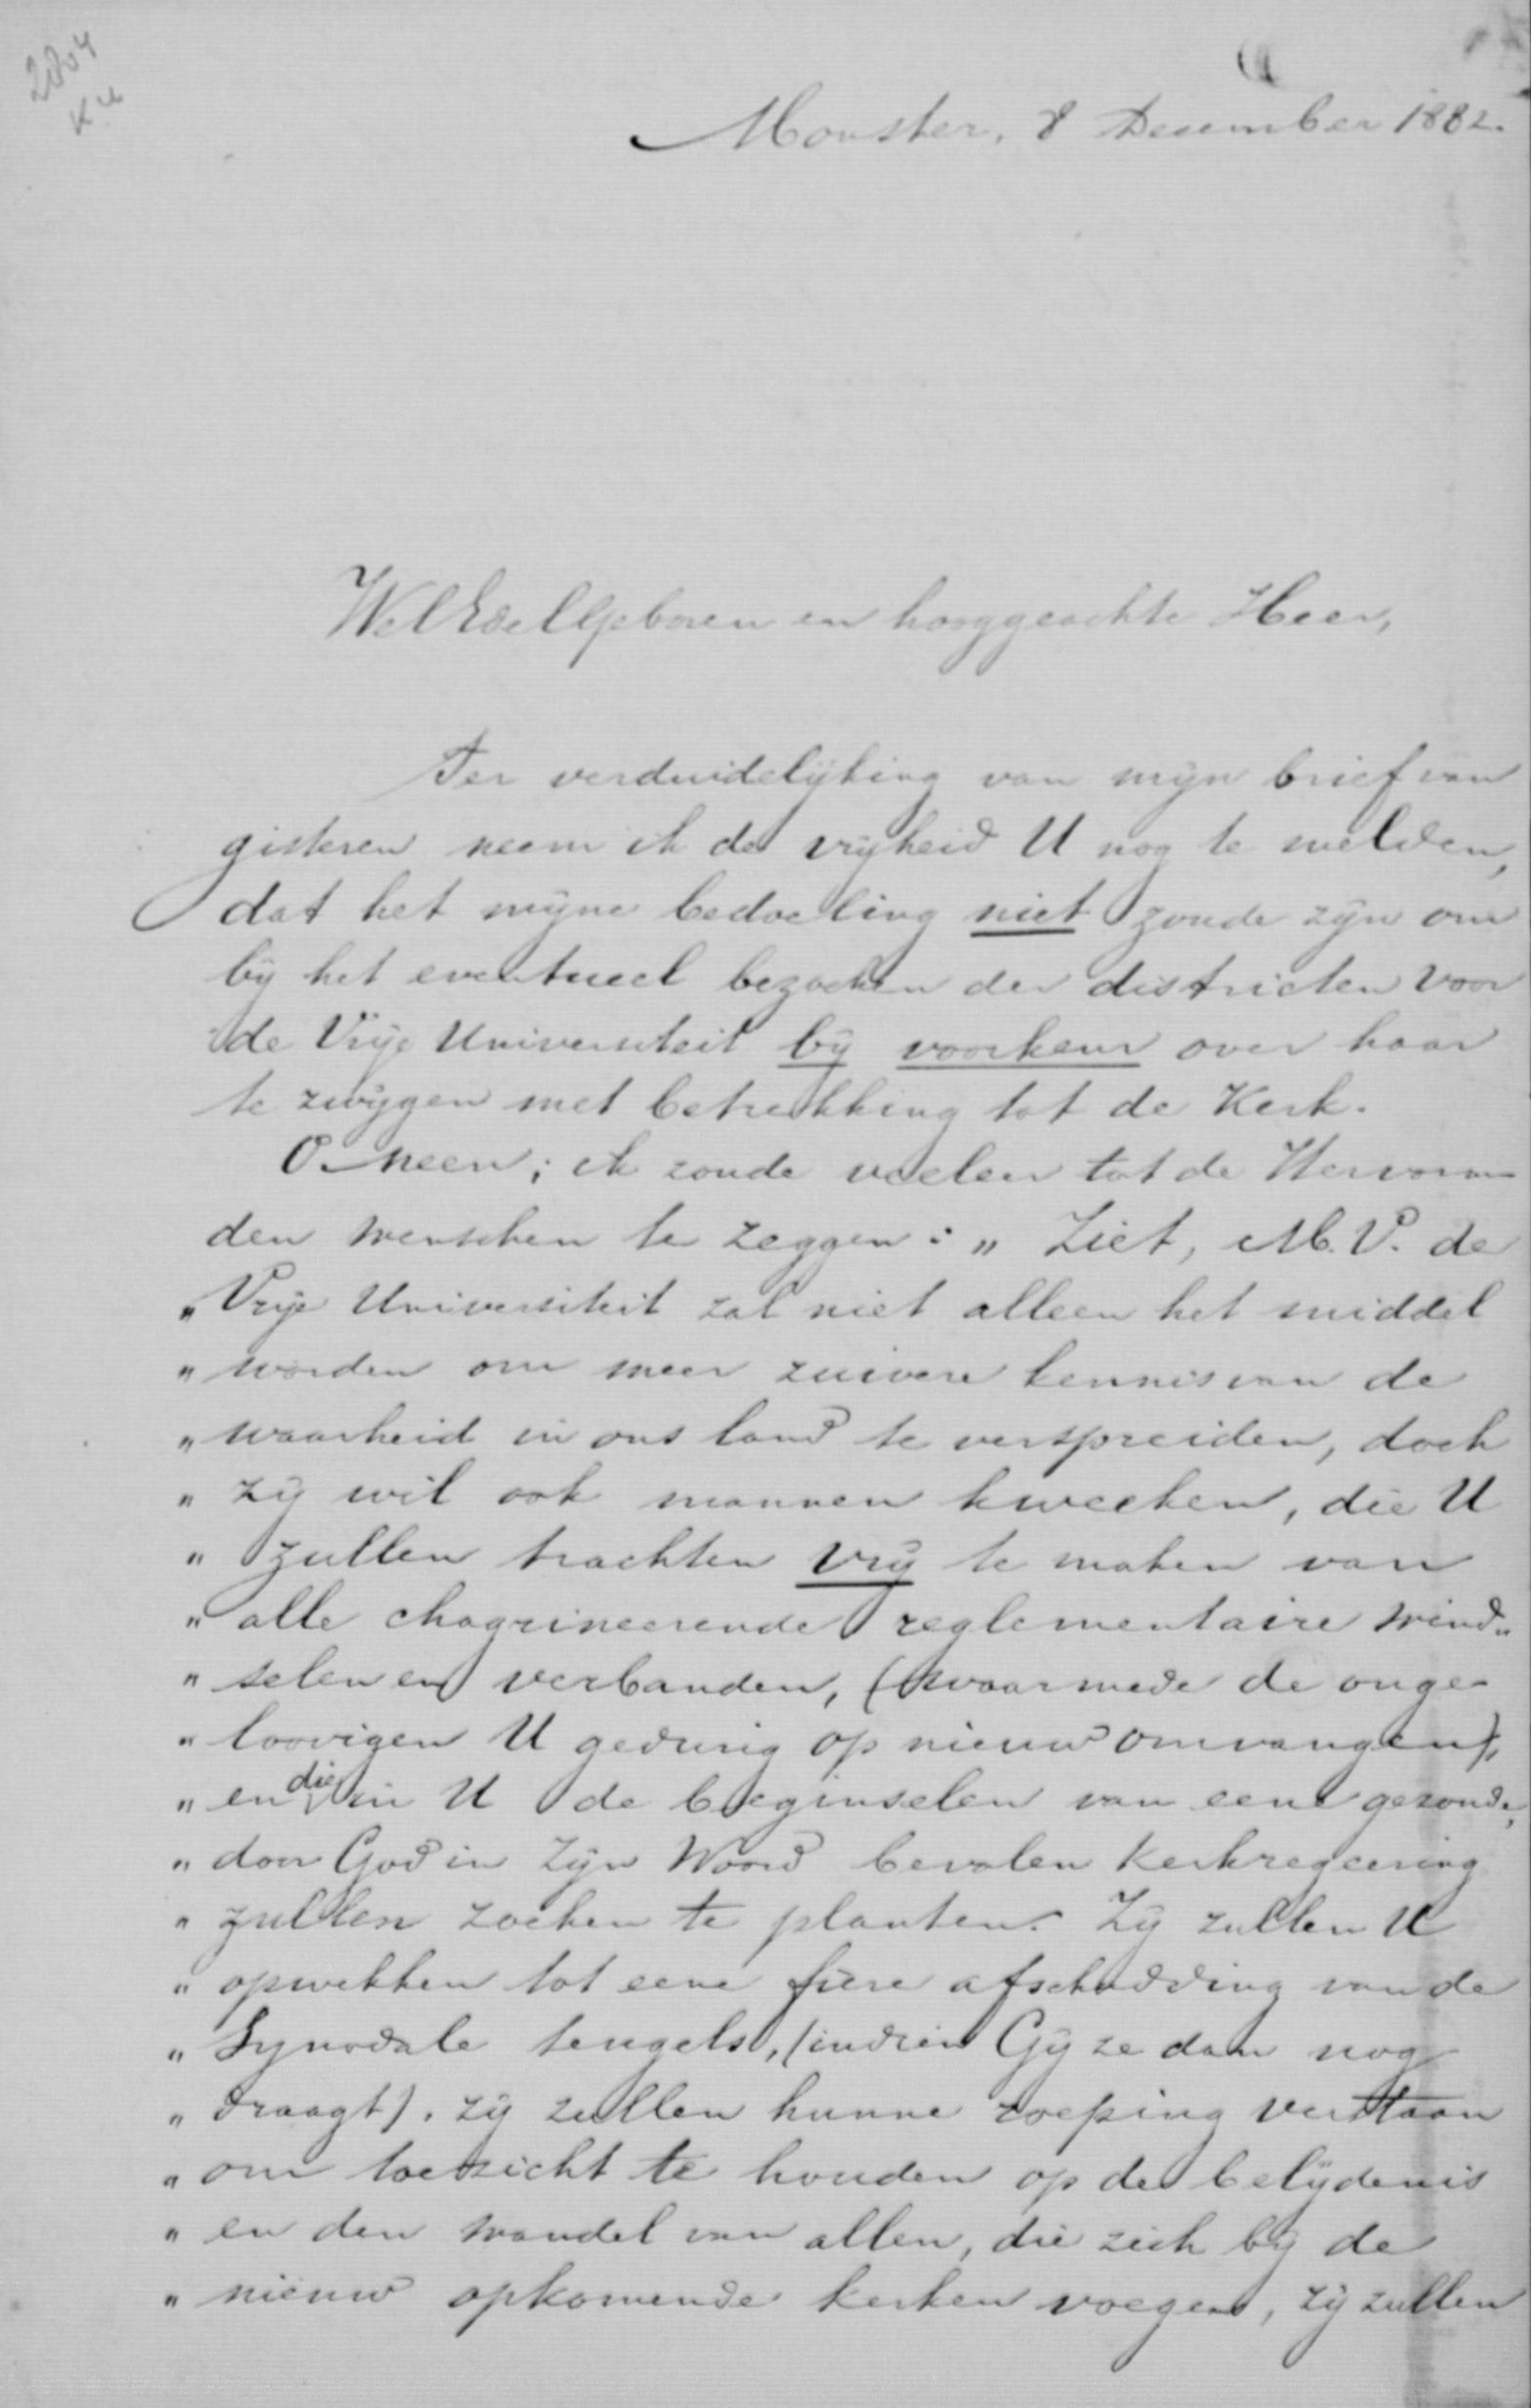 2804
Ku
Monster, 8 December 1882.
WelEdelGeboren en hooggeachte Heer,
Ter verduidelijking van mijn brief van
gisteren neem ik de vrijheid U nog te melden,
dat het mijne bedoeling niet zoude zijn om
bij het eventueel bezoeken der districten voor
de Vrije Universiteit bij voorkeur over haar
te zwijgen met betrekking tot de Kerk.
O neen; ik zoude voelen tot de Hervorm
den menschen te zeggen: „ Ziet, M.V. de
„ Vrije Universiteit zal niet alleen het middel
„ worden om meer zuivere kennis van de
„ waarheid in ons land te verspreiden, doch
„ zij wil ook mannen kweeken, die U
„ zullen trachten vrij te maken van
„ alle chagrineerende reglementaire wind„
„ selen en verbanden, (waarmede de onge-
„ loovigen U gedurig op nieuw omvangen),
„ en die in U de beginselen van eene gezonde,
„ door God in Zijn Woord bevolen kerkregeering
„ zullen zoeken te planten. Zij zullen U
„ opwekken tot eene fiere afschudding van de
„ Synodale teugels, (indien Gij ze dan nog
„ draagt). zij zullen hunne roeping verstaan
„ om toezicht te houden op de belijdenis
„ en den wandel van allen, die zich bij de
„ nieuw opkomende kerken voegen, zij zullen